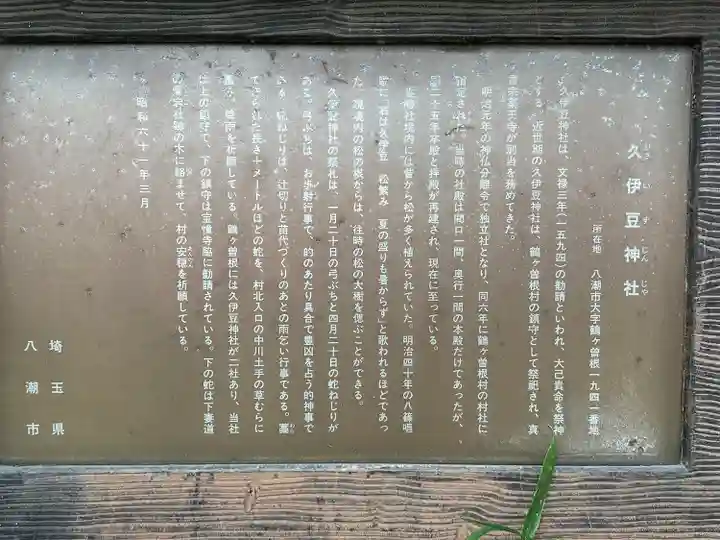 久伊豆神社
いずじんじゃ
所在地 八潮市大字鶴ヶ曽根一九四一番地
久伊豆神社は、文禄三年(一五九四)の勧請といわれ、大己貴命を祭神
とする。近世期の久伊豆神社は、鶴ヶ曽根村の鎮守として祭祀され、真
言宗薬王寺が別当を務めてきた。
明治元年の神仏分離令で独立社となり、同六年に鶴ヶ曽根村の村社に
指定された。当時の社殿は間口一間、奥行一間の本殿だけであったが、
二十五年本殿と拝殿が再建され、現在に至っている。
神社境内には昔から松が多く植えられていた。明治四十年の八篠唱
歌に「若は久伊豆 松繁み 夏の盛りも暑からず」と歌われるほどであっ
た。境内の松の株からは、往時の松の大樹を偲ぶことができる。
久伊豆神社の祭礼は、一月二十日の弓ぶちと四月二十日の蛇ねじりが
ある。弓ぶちは、お歩射行事で、的のあたり具合で豊凶を占う的神事で
ある。蛇ねじりは、辻切りと苗代づくりのあとの雨乞い行事である。藁
でつくられた長さ十メートルほどの蛇を、村北入口の中川土手の草むらに
置き、慈雨を祈願している。鶴ヶ根には久伊豆神社が二社あり、当社
は上の鎮守で、下の鎮守は宝憧寺脇に勧請されている。下の蛇は下妻道
の木に絡ませて、村の安穏を祈願している。
昭和六十一年三月
埼玉県
八潮市